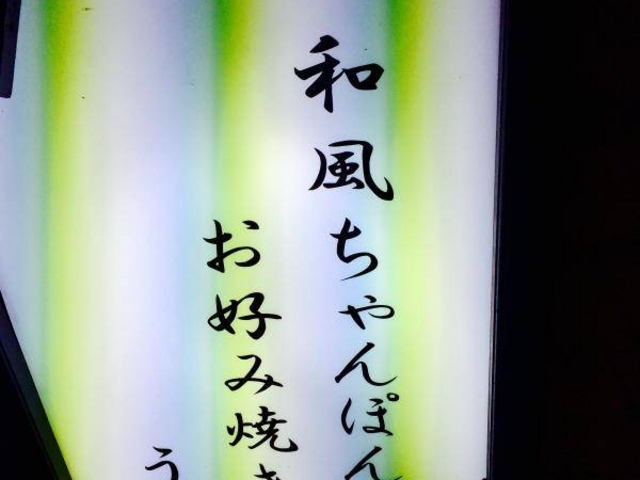 和風ちゃんぽん
お好み焼き
う